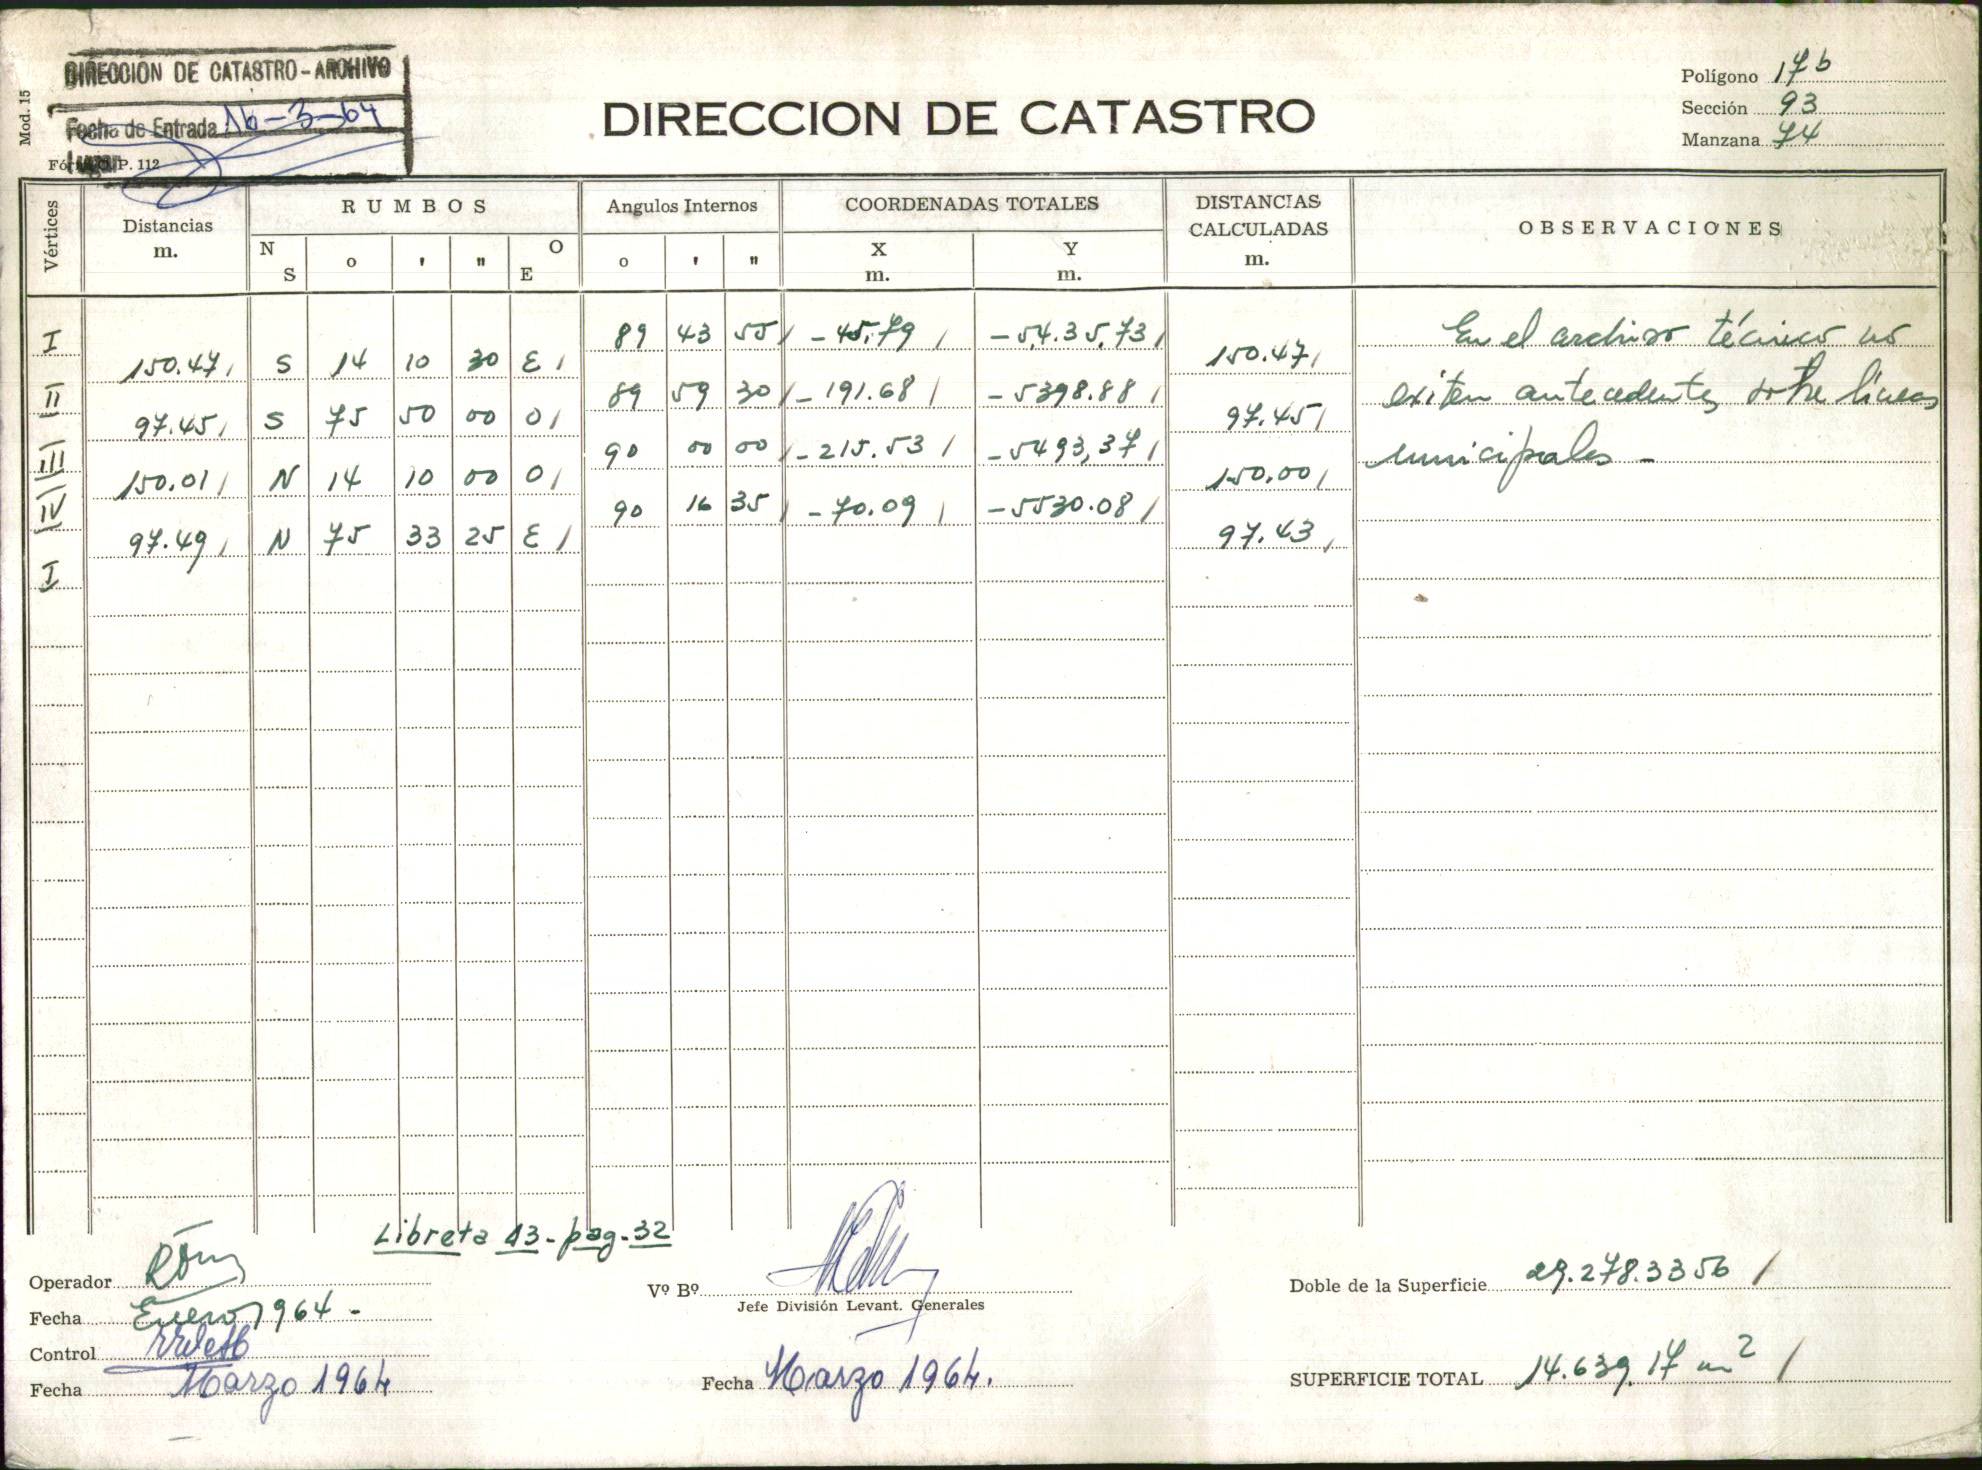 DIRECCION DE CATASTRO - ARCHIVO
Fecha de Entrada 16-3-64
Lugar
Mod. 15
DIRECCION DE CATASTRO
Polígono 17b
Sección 93
Manzana 74
Vértices
Distancias
m.
RUMBOS
N
S
o
'
"
O
E
Angulos Internos
o
'
"
COORDENADAS TOTALES
X
m.
Y
m.
DISTANCIAS
CALCULADAS
m.
OBSERVACIONES
I 89 43 55 -45,79 -54.35,73
150.47 S 14 10 30 E 150.47
II 89 59 30 -191.68 -5398.88
97.45 S 75 50 00 O 97.45
III 90 00 00 -215.53 -5493,37
150.01 N 14 10 00 O 150.00
IV 90 16 35 -70.09 -5530.08
97.49 N 75 33 25 E 97.43
I
En el archivo técnico no
exiten antecedentes sobre líneas
municipales -
Libreta 13-pag-32
Operador
Fecha Enero 1964 -
Control
Fecha Marzo 1964
Vº Bº
Jefe División Levant. Generales
Fecha Marzo 1964.
Doble de la Superficie 29.278.3356
SUPERFICIE TOTAL 14.639.17 m²